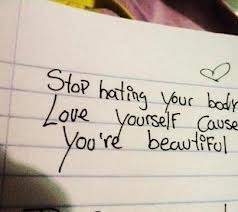 Stop hating your body
Love yourself cause
You're beautiful